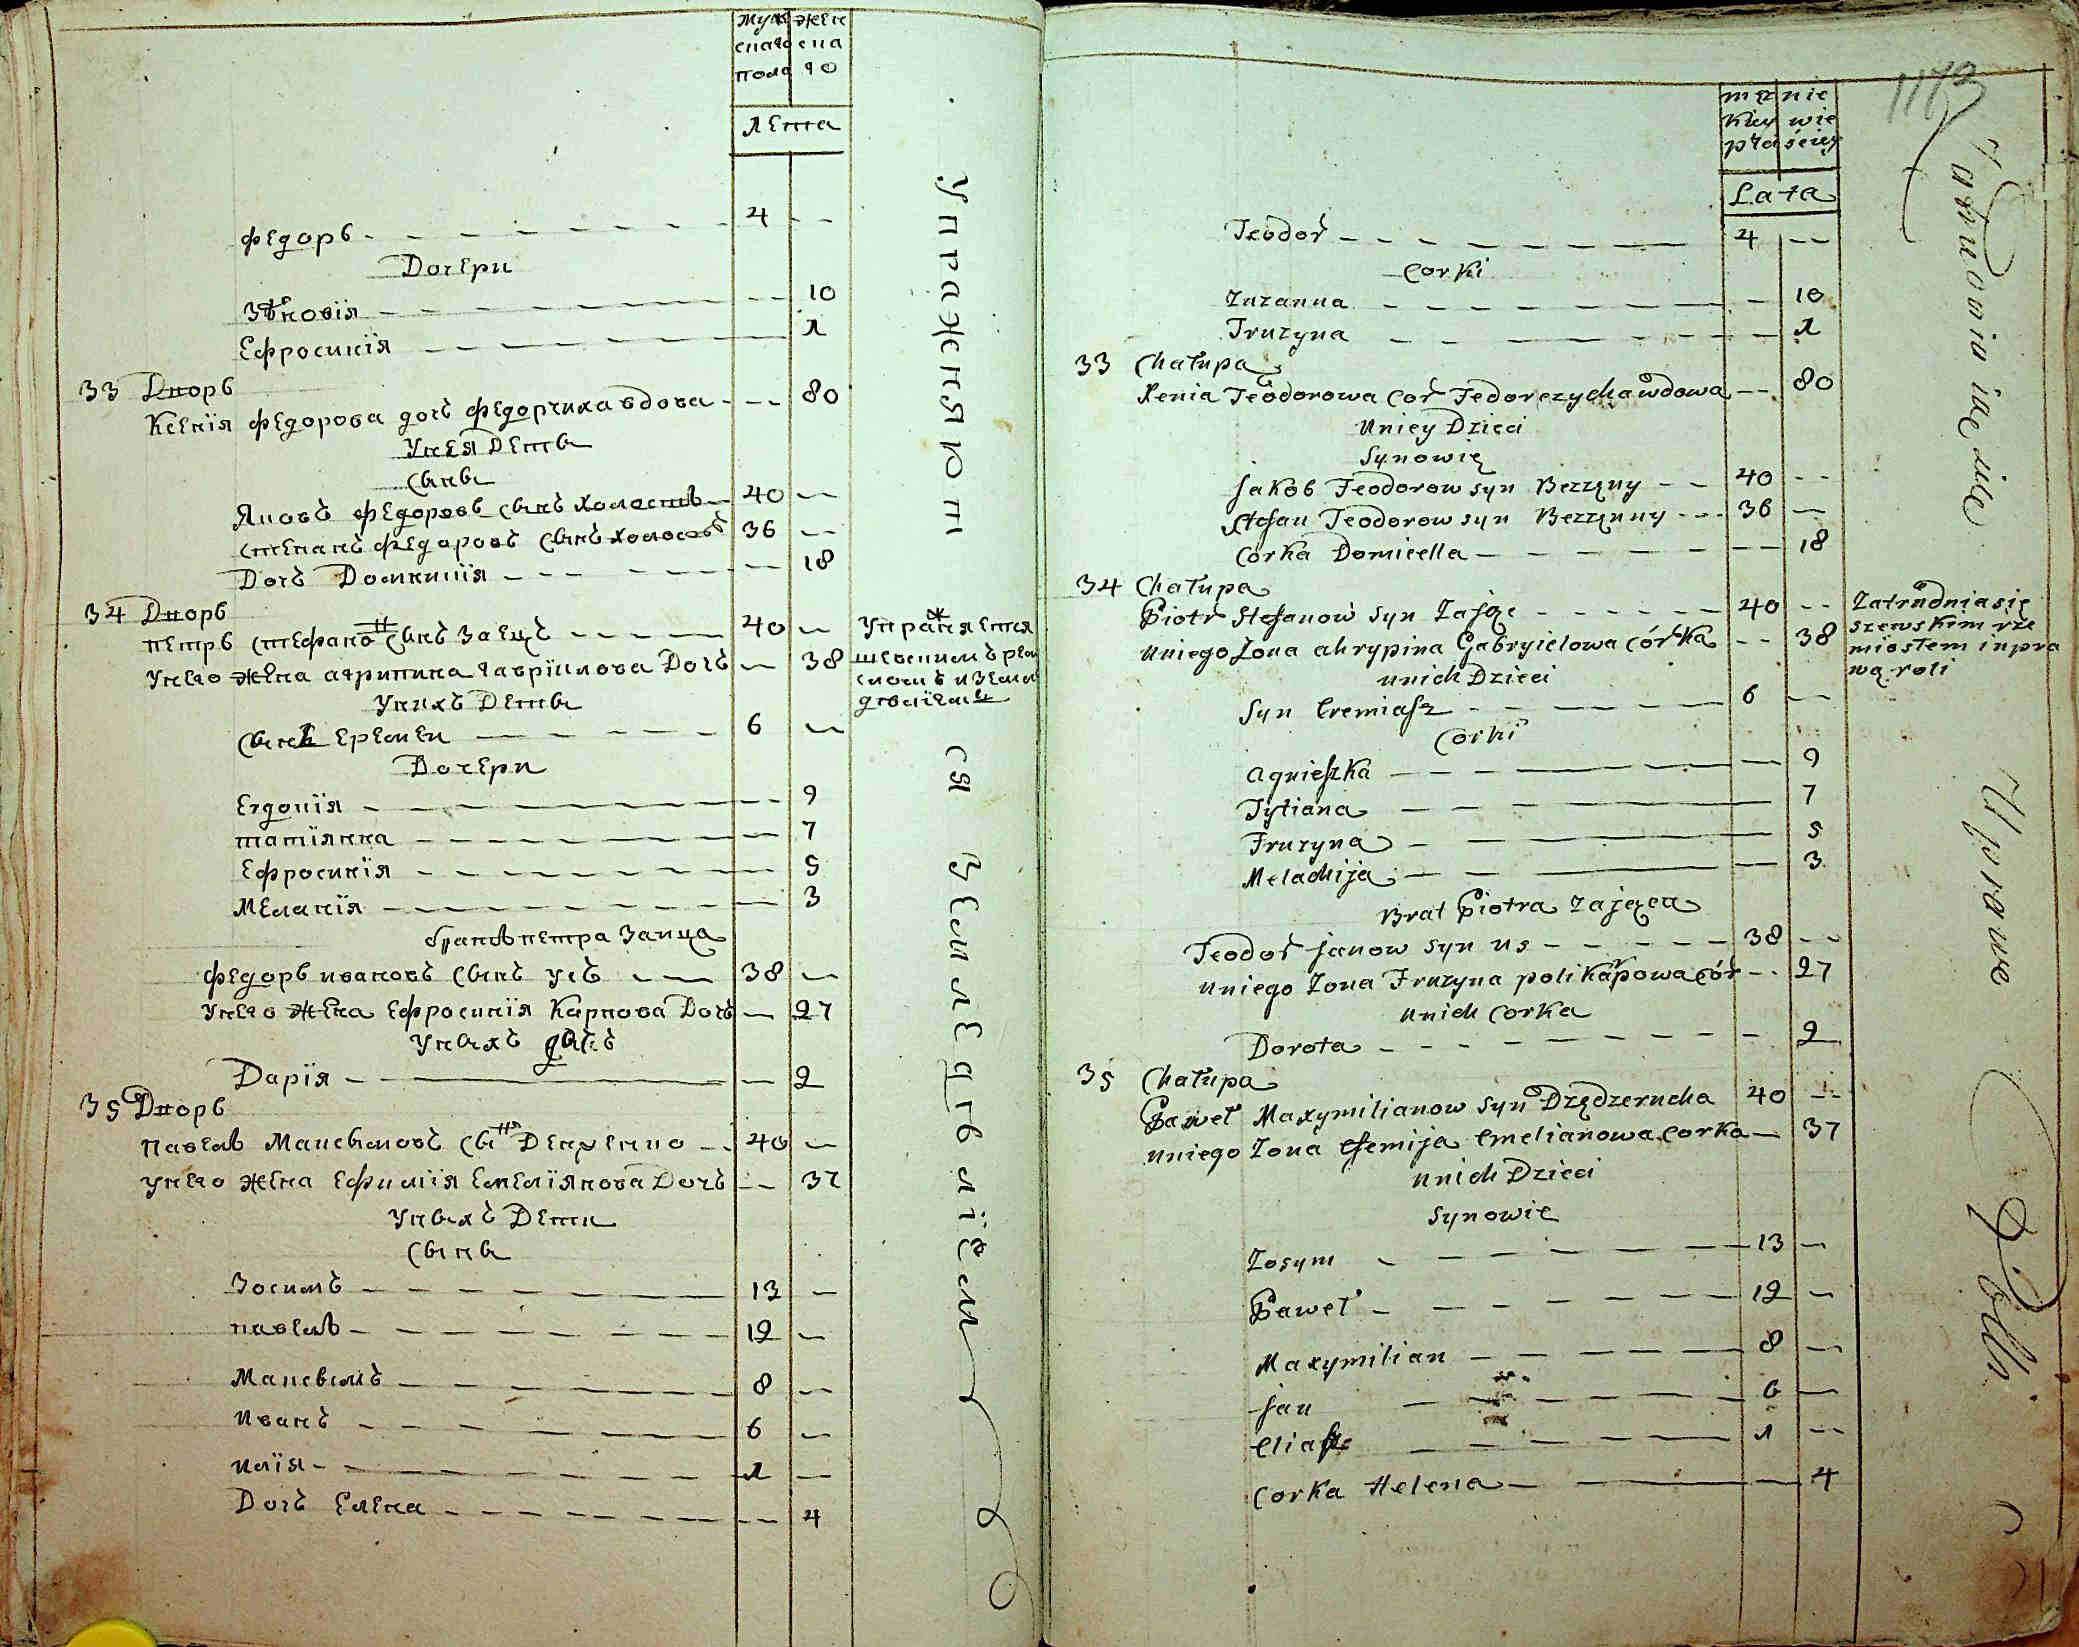 Муж жен
скаго ска
пола го
Лета
Федоръ 4
Дочери
Зѣновїя 10
Ефросинїя 1
33 Дворъ
Ксенїя Федорова дочь Федорчиха вдова 80
У нея Дети
Сыны
Яковъ Федоровъ сынъ холостъ 40
Степанъ Федоровъ сынъ холостъ 36
Дочь Домникїя 18
34 Дворъ
Петръ Стефановъ сынъ Заецъ 40
У него жена Агрипина Гаврїилова Дочь 38
У нихъ Дети
Сынъ Еремеи 6
Дочери
Евдокїя 9
Татїянна 7
Ефросинїя 5
Меланїя 3
братъ Петра Заица
Федоръ Ивановъ сынъ Усъ 38
У него жена Ефросинїя Карпова Дочь 27
У ныхъ дочь
Дарїя 2
35 Дворъ
Павелъ Максымовъ сынъ 40
У него жена Ефимїя Емелїянова Дочь 37
У ныхъ Дети
Сыны
Зосимъ 13
Павелъ 12
Максымъ 8
Иванъ 6
Илїя 1
Дочь Елена 4
Упражняетця
шевскимъ реме
сломъ и земле
делїемъ
Упражняются земледѣлїем
męz nie
kiey wie
płci ściey
Lata
Teodor 4
Corki
Zuzanna 10
Fruzyna 1
33 Chałupa
Xenia Teodorowa Cor Fedorczycha wdowa 80
U niey Dzieci
Synowie
Jakob Teodorow syn Bezzęny 40
Stefan Teodorow syn Bezzęnny 36
Corka Domicella 18
34 Chałupa
Piotr Stefanow syn Zając 40
U niego Zona Ahrypina Gabryielowa córka 38
U nich Dzieci
Syn Eremiasz 6
Corki
Agnieszka 9
Tytiana 7
Fruzyna 5
Melachija 3
Brat Piotra Zająca
Teodor Janow syn Us 38
U niego Zona Fruzyna Polikarpowa cór 27
U nich Corka
Dorota 2
35 Chałupa
Paweł Maxymilianow syn Dzędzerucha 40
U niego Zona Efemija Emelianowa Corka 37
U nich Dzieci
Synowie
Zosym 13
Paweł 12
Maxymilian 8
Jan 6
Eliasz 1
Corka Helena 4
Zatrudnia się
szewskim rze
miosłem i upra
wą roli
Zatrudnia ią się Uprawą Roli